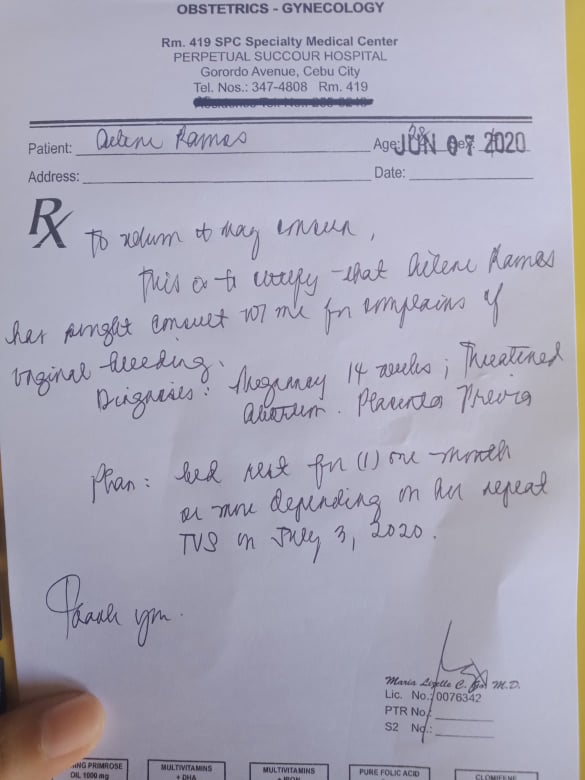 OBSTETRICS - GYNECOLOGY
Rm. 419 SPC Specialty Medical Center
PERPETUAL SUCCOUR HOSPITAL
Gorordo Avenue, Cebu City
Tel. Nos.: 347-4808 Rm. 419
Patient: Ailene Ramas Age: JUN 07 2020
Address: Date:
Rx
To whom it may concern,
This is to certify that Ailene Ramas
has sought consult w/ me for complains of
vaginal bleeding.
Diagnosis: Pregnancy 14 weeks; Threatened
Abortion. Placenta Previa
Plan: bed rest for (1) one month
or more depending on her repeat
TVS on July 3, 2020.
Thank you.
Maria Lizelle C. M.D.
Lic. No.: 0076342
PTR No.:
S2 No.:
ING PRIMROSE OIL 1000 mg
MULTIVITAMINS + DHA
MULTIVITAMINS + IRON
PURE FOLIC ACID
CLOMIFENE